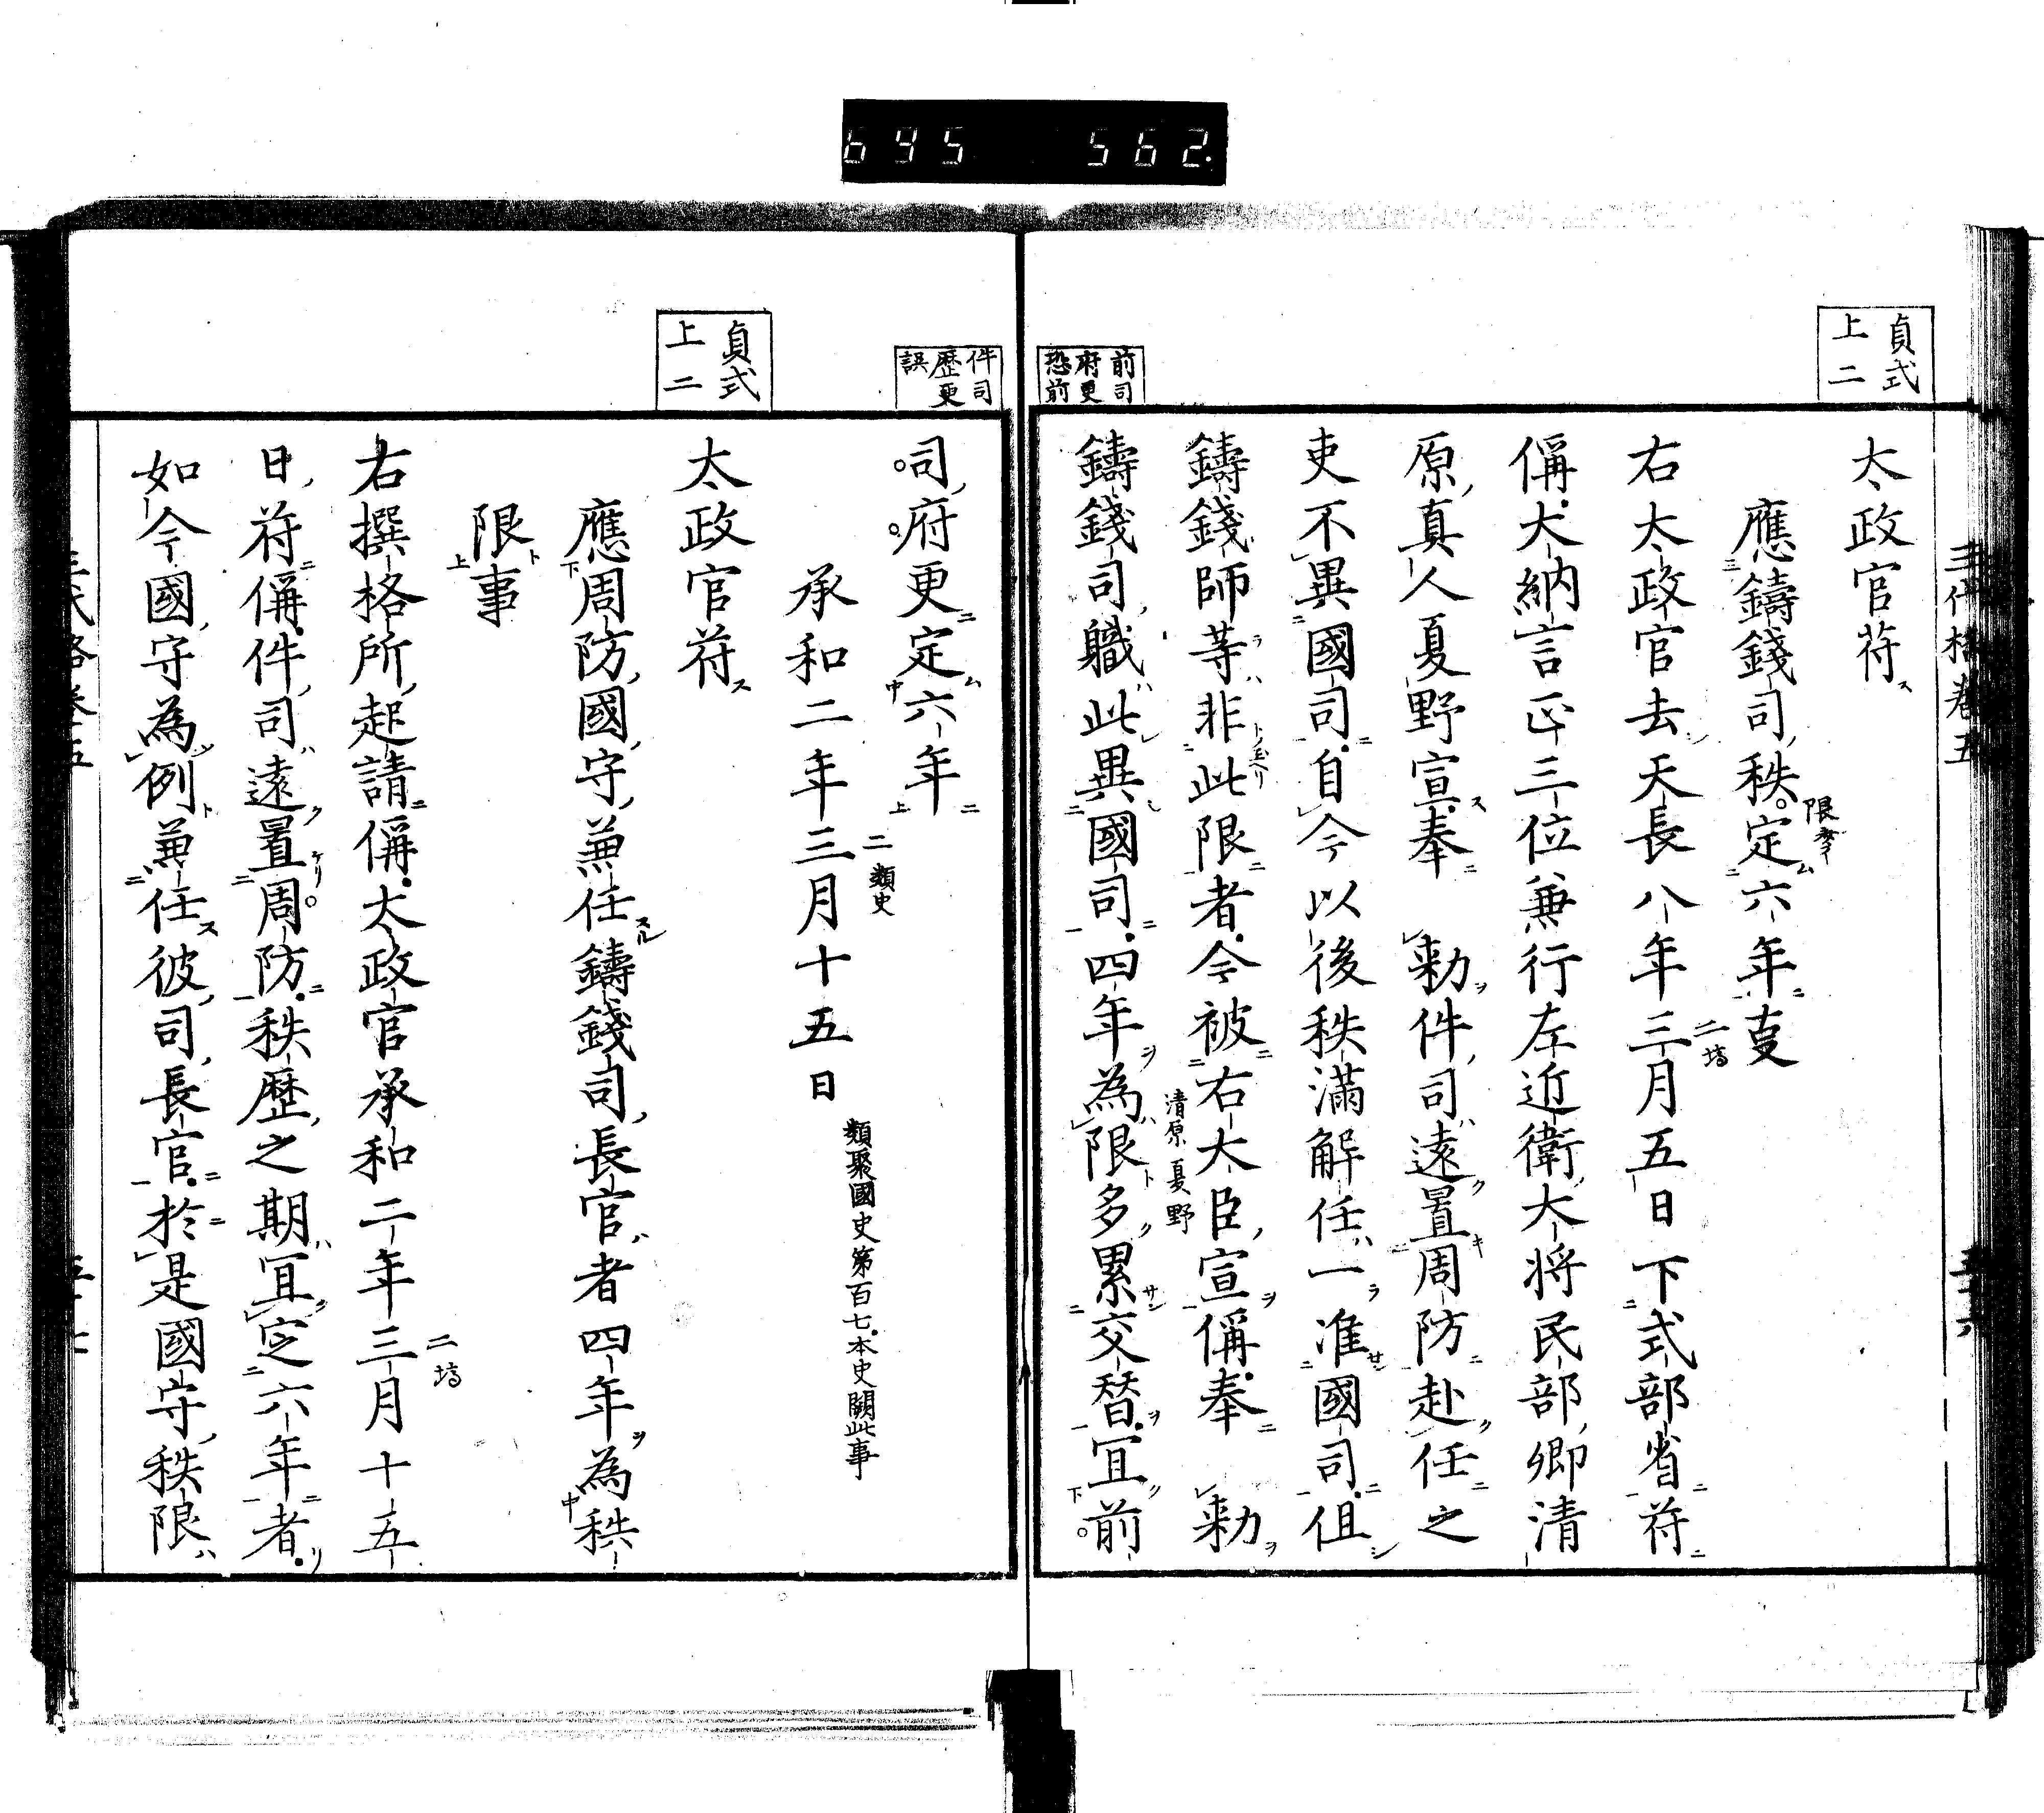 695 562.
貞式
上二
太政官苻
應鑄錢司秩定六年㕝
限
右太政官去天長八年三月五日下式部省苻
二塙
偁大納言正三位兼行左近衛大将民部卿清
原真人夏野宣奉 勅件司遠置周防赴任之
吏不異國司自今以後秩滿解任一准國司但
鑄錢師等非此限者今被右大臣宣偁奉 勅
清原夏野
鑄錢司職此異國司四年為限多累交替宜前
前司
府更
恐前
件司
歴更
誤
司府更定六年
承和二年三月十五日
二類史
類聚國史第百七本史闕此事
貞式
上二
太政官苻
應周防國守兼任鑄錢司長官者四年為秩
限事
右撰格所起請偁太政官承和二年三月十五
二塙
日苻偁件司遠置周防秩歴之期宜定六年者
如今國守為例兼任彼司長官於是國守秩限